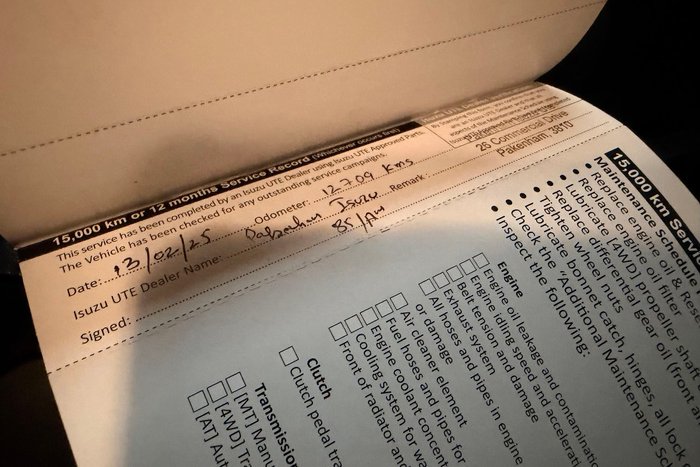 15,000 km or 12 months Service Record (Whichever occurs first)
This service has been completed by an Isuzu UTE Dealer using Isuzu UTE Approved Parts.
The Vehicle has been checked for any outstanding service campaigns.
Date: 13/02/25 Odometer: 12709 Kms
Isuzu UTE Dealer Name: Pakenham Isuzu Remark:
Signed:
26 Commercial Drive
Pakenham 3810
15,000 km Servic
Maintenance Schedu
• Replace engine oil & Res
• Replace engine oil filter
• Lubricate (4WD) propeller shaft
• Replace differential gear oil (front
• Tighten wheel nuts
• Lubricate bonnet catch, hinges, all lock
• Check the "Additional Maintenance Sc
• Inspect the following:
Engine
Engine oil leakage and contaminati
Engine idling speed and accelerati
Belt tension and damage
Exhaust system
All hoses and pipes in engine
or damage
Air cleaner element
Fuel hoses and pipes for
Engine coolant concent
Cooling system for wa
Front of radiator and
Clutch
Clutch pedal tra
Transmission
[MT] Manu
[4WD] Tra
[AT] Aut